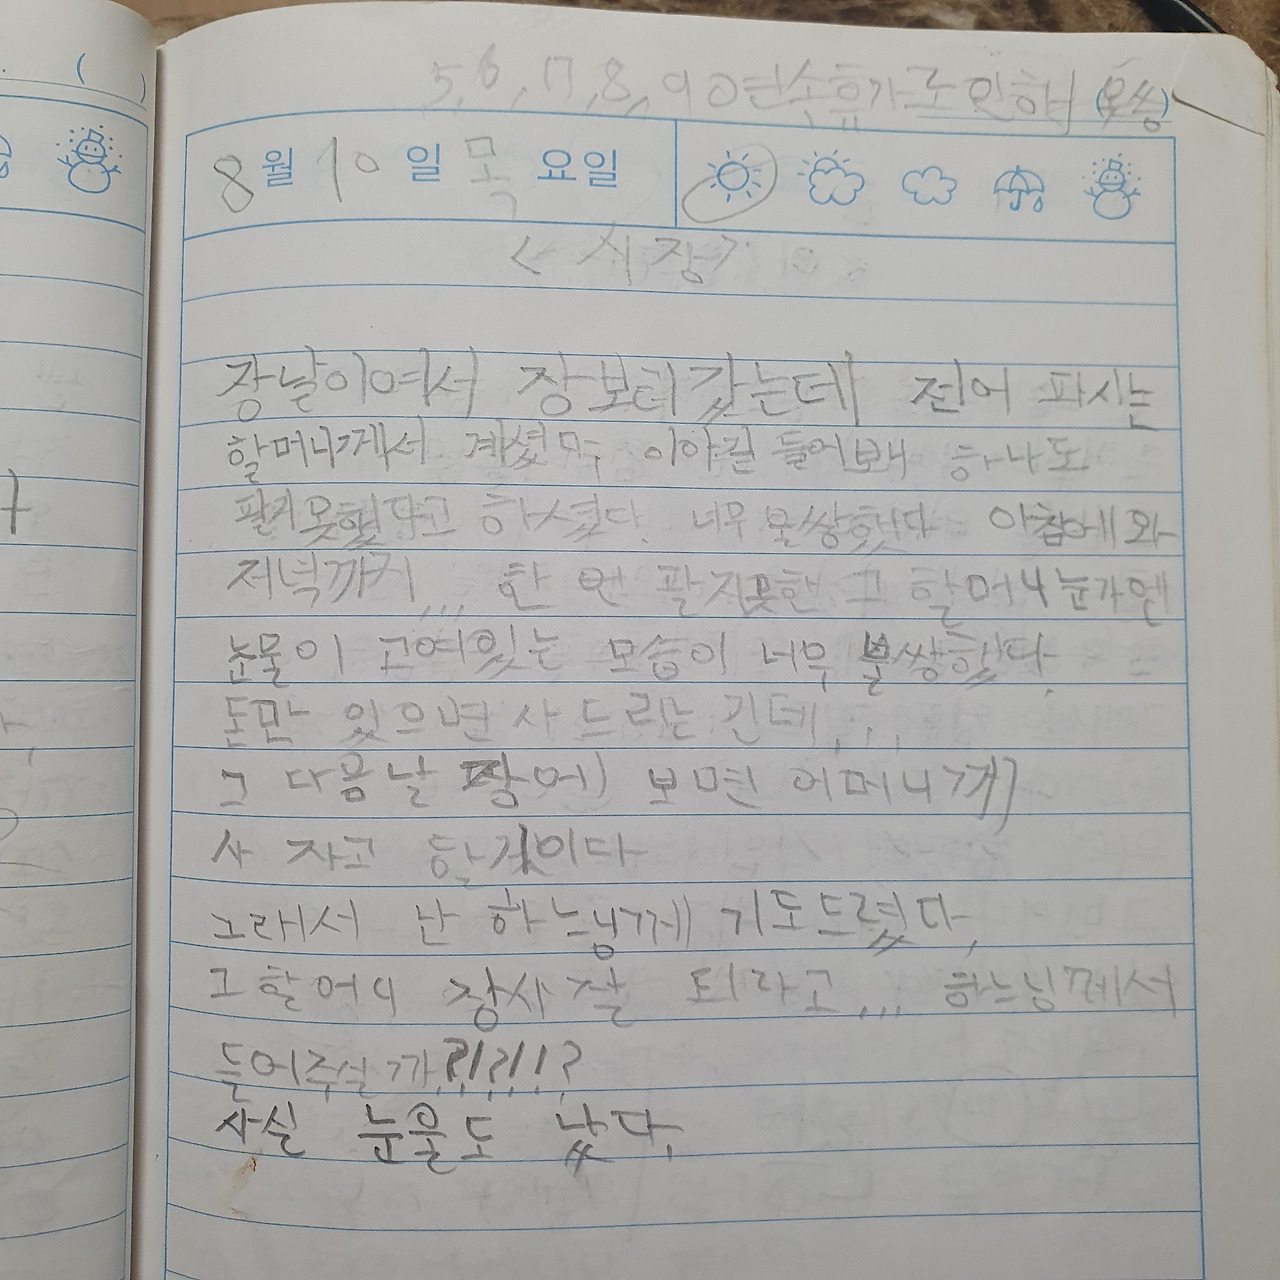 5, 6, 7, 8, 9 연속휴가로 인해 (못씀)
8월 10일 목요일
<시장>
장날이여서 장보러갔는데 전어 파시는
할머니께서 계셨 이야길 들어보내 하나도
팔지못했다고 하셨다. 너무 불쌍했다 아침에와
저녁까지,,, 한 번 팔지못한 그 할머니 눈가엔
눈물이 고여있는 모습이 너무 불쌍했다.
돈만 있으면 사 드리는 긴데,,,
그 다음날 장에 보면 어머니께
사 자고 할것이다
그래서 난 하느님께 기도드렸다,
그할머니 장사 잘 되라고,,, 하느님께서
들어주실까?!?!!?
사실 눈물도 났다,